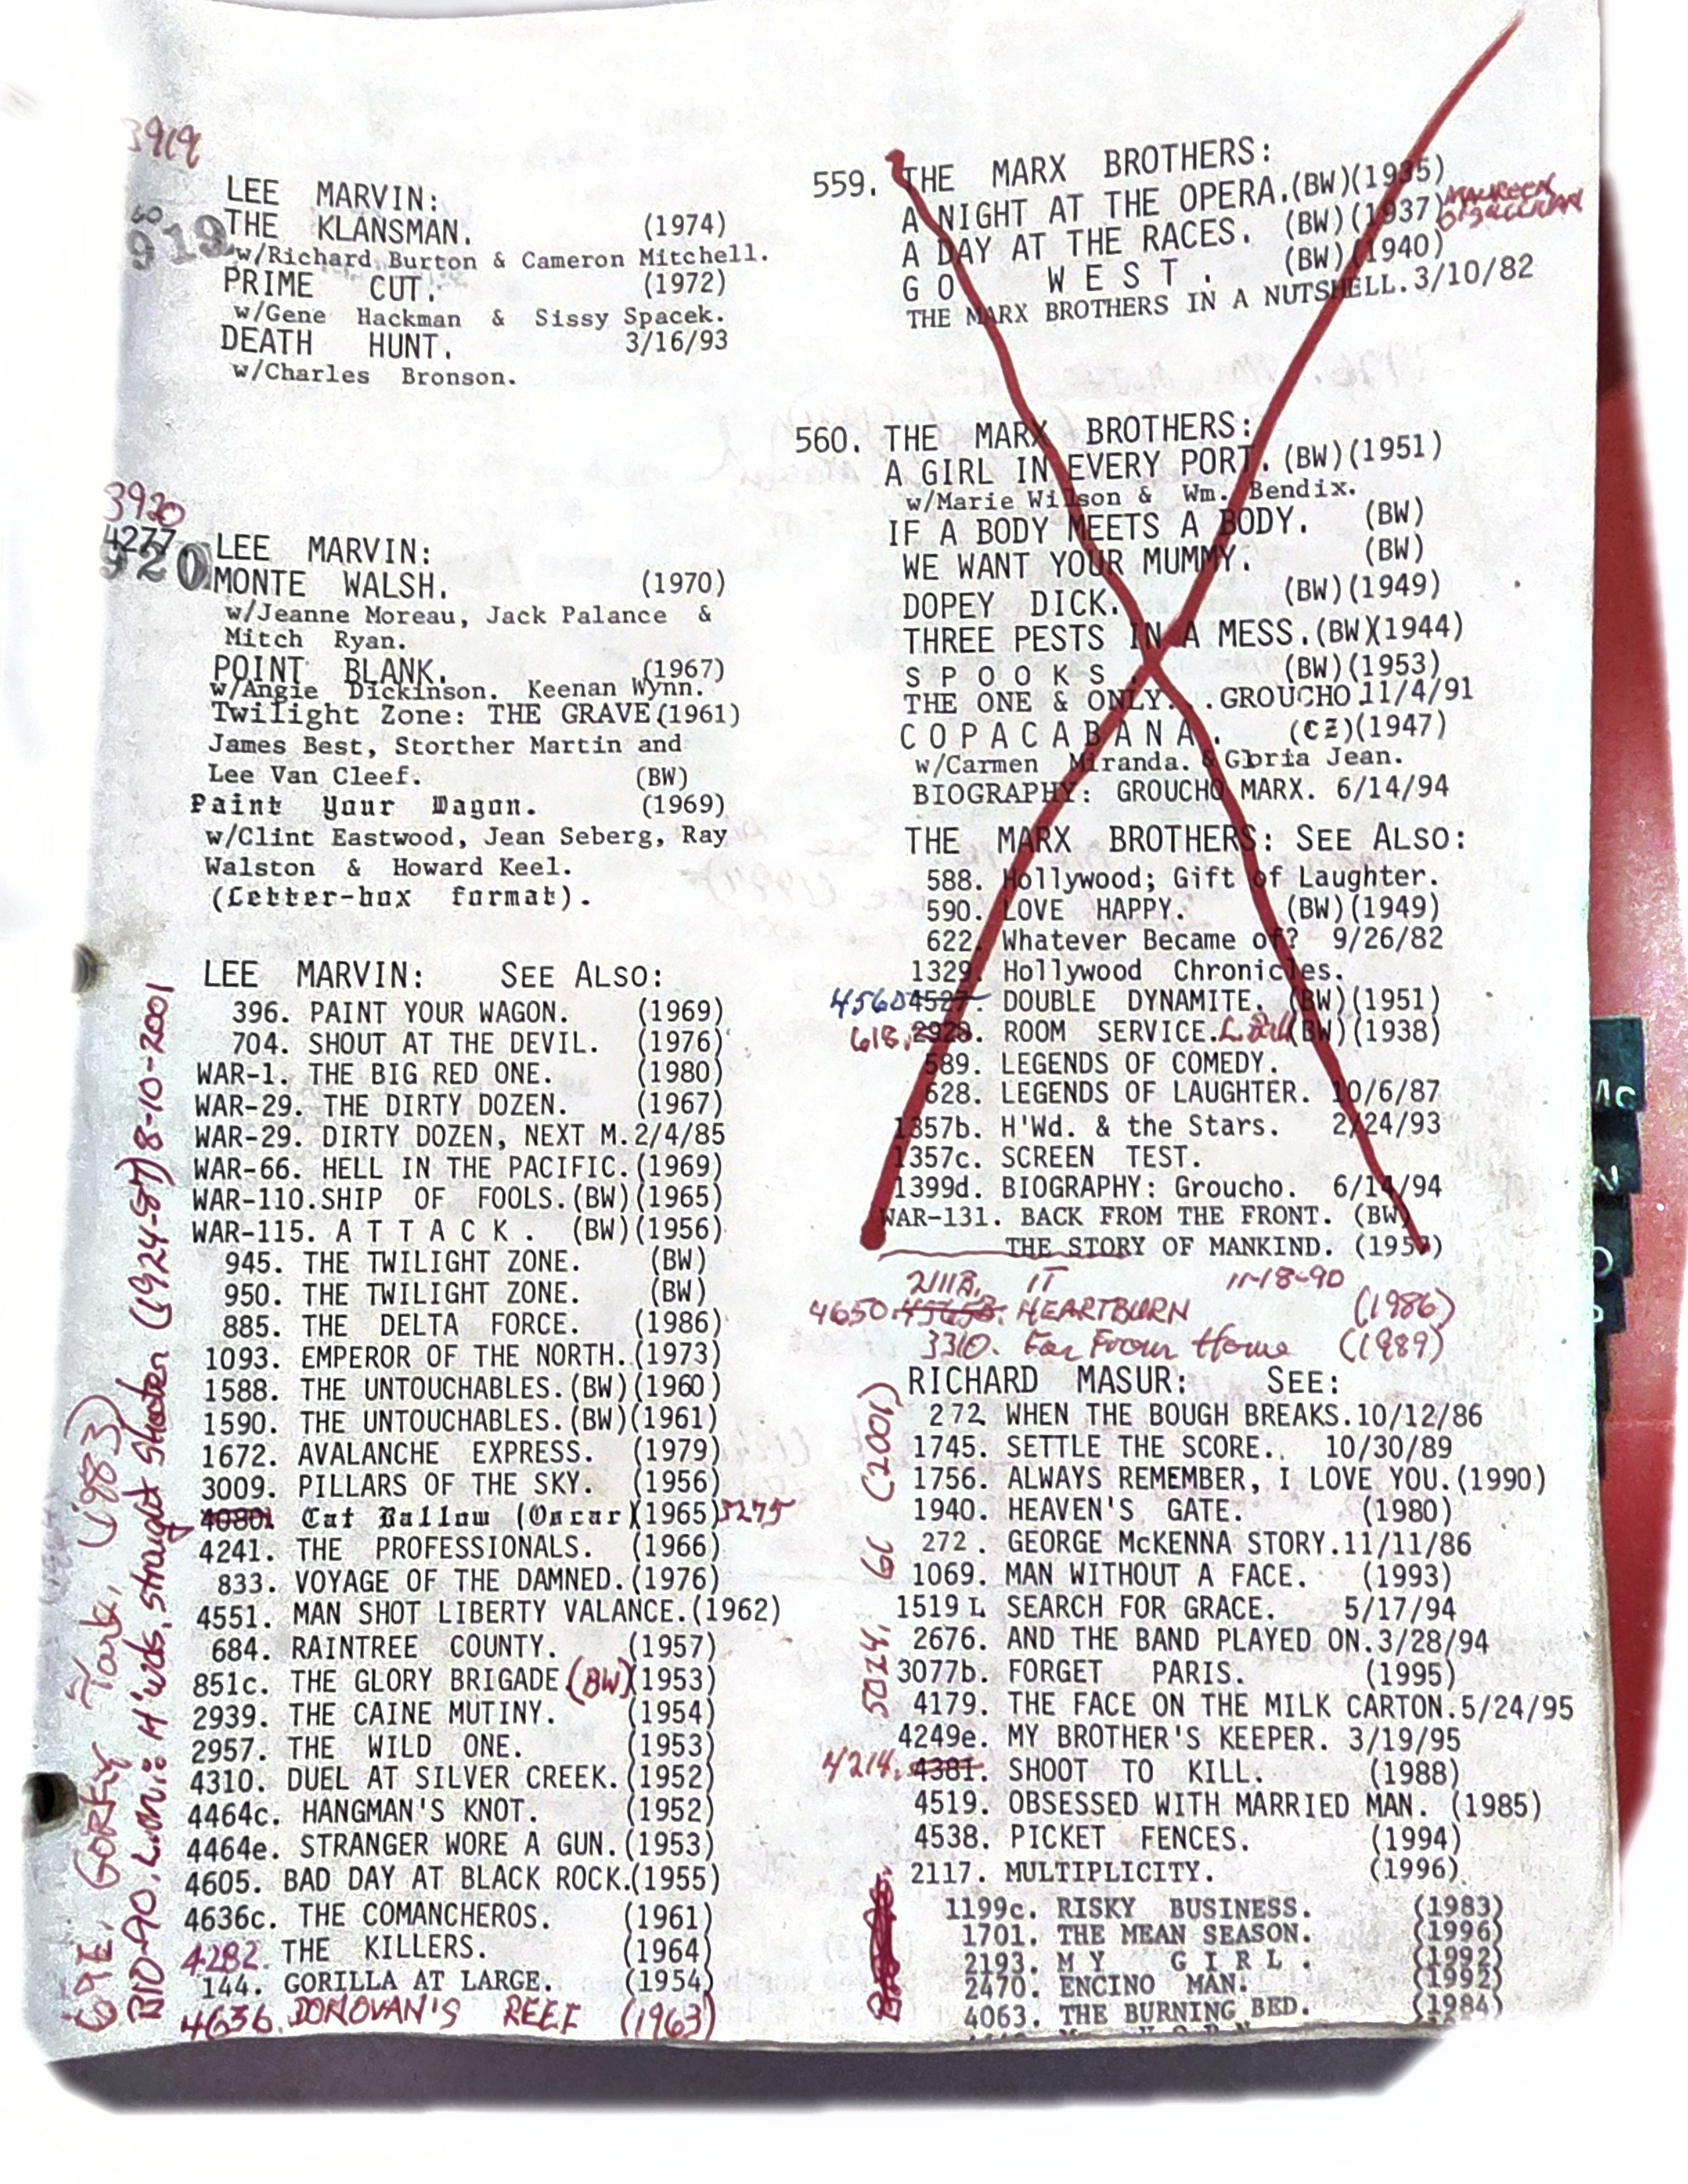 3919
LEE MARVIN:
60
919 THE KLANSMAN. (1974)
w/Richard Burton & Cameron Mitchell.
PRIME CUT. (1972)
w/Gene Hackman & Sissy Spacek.
DEATH HUNT. 3/16/93
w/Charles Bronson.
3920
4277
920 LEE MARVIN:
MONTE WALSH. (1970)
w/Jeanne Moreau, Jack Palance &
Mitch Ryan.
POINT BLANK. (1967)
w/Angie Dickinson. Keenan Wynn.
Twilight Zone: THE GRAVE(1961)
James Best, Storther Martin and
Lee Van Cleef. (BW)
Paint Your Wagon. (1969)
w/Clint Eastwood, Jean Seberg, Ray
Walston & Howard Keel.
(Letter-box format).
LEE MARVIN: SEE ALSO:
396. PAINT YOUR WAGON. (1969)
704. SHOUT AT THE DEVIL. (1976)
WAR-1. THE BIG RED ONE. (1980)
WAR-29. THE DIRTY DOZEN. (1967)
WAR-29. DIRTY DOZEN, NEXT M.2/4/85
WAR-66. HELL IN THE PACIFIC.(1969)
WAR-110.SHIP OF FOOLS.(BW)(1965)
WAR-115. A T T A C K . (BW)(1956)
945. THE TWILIGHT ZONE. (BW)
950. THE TWILIGHT ZONE. (BW)
885. THE DELTA FORCE. (1986)
1093. EMPEROR OF THE NORTH.(1973)
1588. THE UNTOUCHABLES.(BW)(1960)
1590. THE UNTOUCHABLES.(BW)(1961)
1672. AVALANCHE EXPRESS. (1979)
3009. PILLARS OF THE SKY. (1956)
4080. Cat Ballou (Oscar)(1965)3275
4241. THE PROFESSIONALS. (1966)
833. VOYAGE OF THE DAMNED.(1976)
4551. MAN SHOT LIBERTY VALANCE.(1962)
684. RAINTREE COUNTY. (1957)
851c. THE GLORY BRIGADE.(BW)(1953)
2939. THE CAINE MUTINY. (1954)
2957. THE WILD ONE. (1953)
4310. DUEL AT SILVER CREEK.(1952)
4464c. HANGMAN'S KNOT. (1952)
4464e. STRANGER WORE A GUN.(1953)
4605. BAD DAY AT BLACK ROCK.(1955)
4636c. THE COMANCHEROS. (1961)
4282. THE KILLERS. (1964)
144. GORILLA AT LARGE. (1954)
4636. DONOVAN'S REEF (1963)
69E, GORKY Park, (1983)
BIO-90. L.M.: H'wds. straight Shooter (1924-87) 8-10-2001
559. THE MARX BROTHERS:
A NIGHT AT THE OPERA.(BW)(1935)
A DAY AT THE RACES. (BW)(1937) MAUREEN O'SULLIVAN
G O W E S T . (BW)(1940)
THE MARX BROTHERS IN A NUTSHELL.3/10/82
560. THE MARX BROTHERS:
A GIRL IN EVERY PORT. (BW)(1951)
w/Marie Wilson & Wm. Bendix.
IF A BODY MEETS A BODY. (BW)
WE WANT YOUR MUMMY. (BW)
DOPEY DICK. (BW)(1949)
THREE PESTS IN A MESS.(BW)(1944)
S P O O K S . (BW)(1953)
THE ONE & ONLY. .GROUCHO 11/4/91
C O P A C A B A N A . (CZ)(1947)
w/Carmen Miranda. & Gloria Jean.
BIOGRAPHY: GROUCHO MARX. 6/14/94
THE MARX BROTHERS: SEE ALSO:
588. Hollywood; Gift of Laughter.
590. LOVE HAPPY. (BW)(1949)
622. Whatever Became of? 9/26/82
1329. Hollywood Chronicles.
4560 4527. DOUBLE DYNAMITE. (BW)(1951)
618. 2928. ROOM SERVICE. L. Ball (BW)(1938)
589. LEGENDS OF COMEDY.
628. LEGENDS OF LAUGHTER. 10/6/87
1357b. H'Wd. & the Stars. 2/24/93
1357c. SCREEN TEST.
1399d. BIOGRAPHY: Groucho. 6/14/94
WAR-131. BACK FROM THE FRONT. (BW)
THE STORY OF MANKIND. (1957)
2111B. IT 11-18-90
4650. HEARTBURN (1986)
3310. Far From Home (1989)
RICHARD MASUR: SEE:
272 WHEN THE BOUGH BREAKS.10/12/86
1745. SETTLE THE SCORE.. 10/30/89
1756. ALWAYS REMEMBER, I LOVE YOU.(1990)
1940. HEAVEN'S GATE. (1980)
272 . GEORGE McKENNA STORY.11/11/86
1069. MAN WITHOUT A FACE. (1993)
1519 L SEARCH FOR GRACE. 5/17/94
2676. AND THE BAND PLAYED ON.3/28/94
3077b. FORGET PARIS. (1995)
4179. THE FACE ON THE MILK CARTON.5/24/95
4249e. MY BROTHER'S KEEPER. 3/19/95
4214. 4381. SHOOT TO KILL. (1988)
4519. OBSESSED WITH MARRIED MAN. (1985)
4538. PICKET FENCES. (1994)
2117. MULTIPLICITY. (1996)
1199c. RISKY BUSINESS. (1983)
1701. THE MEAN SEASON. (1996)
2193. M Y G I R L . (1992)
2470. ENCINO MAN. (1992)
4063. THE BURNING BED. (1984)
5024, 61 (2001)